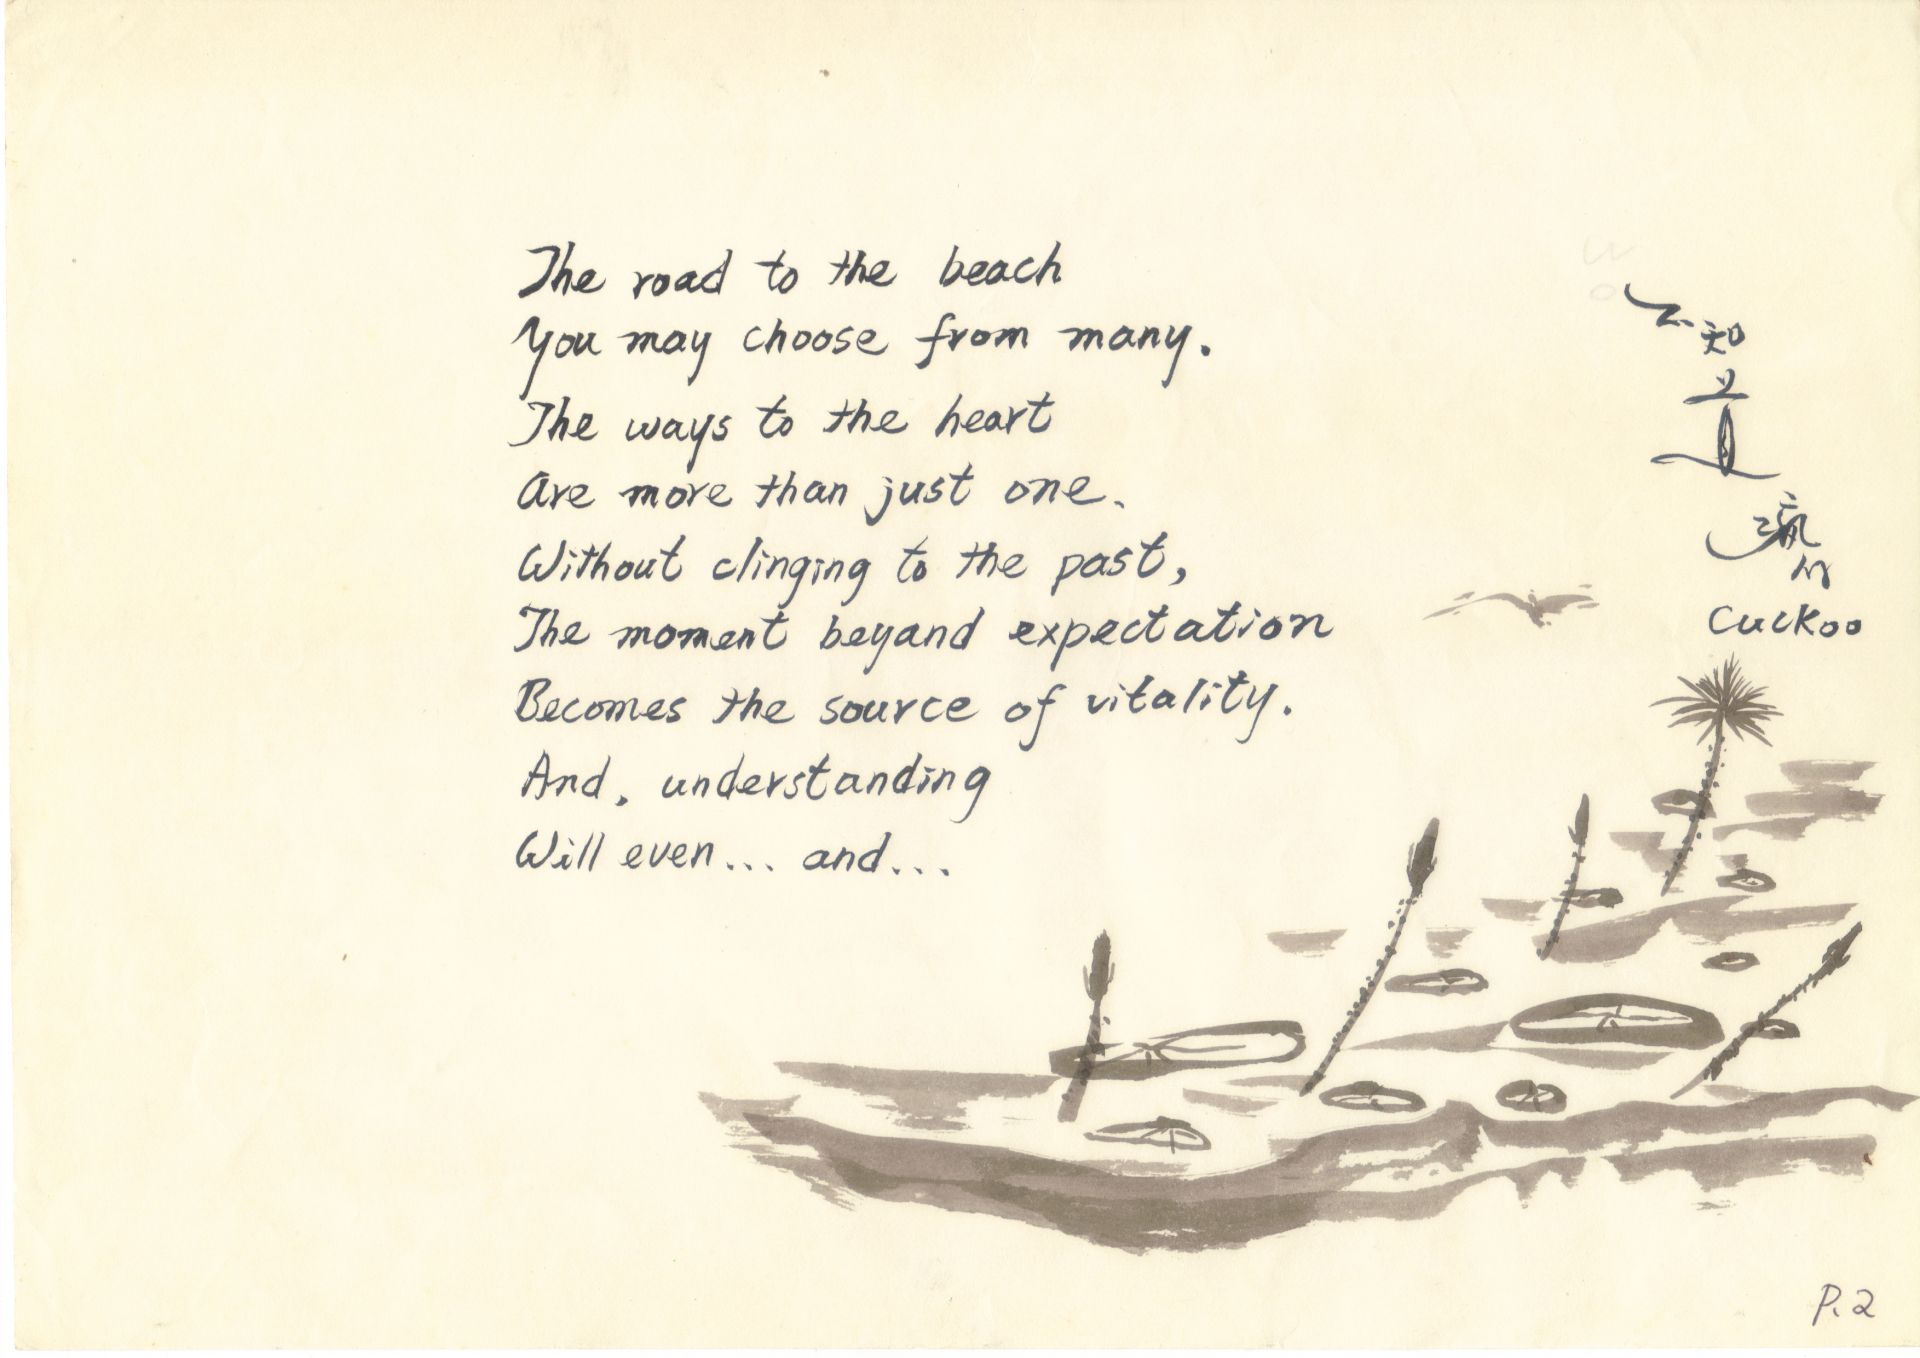 The road to the beach
You may choose from many.
The ways to the heart
Are more than just one.
Without clinging to the past,
The moment beyand expectation
Becomes the source of vitality.
And, understanding
Will even... and...
不知道
Cuckoo
P.2